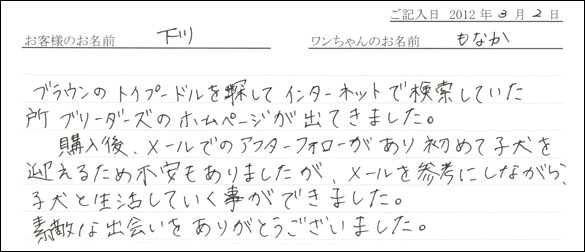 ご記入日 2012年3月2日
お客様のお名前 下川 ワンちゃんのお名前 もなか
ブラウンのトイプードルを探して インターネットで検索していた
所 ブリーダーズのホームページが出てきました。
購入後、メールでのアフターフォローがあり 初めて子犬を
迎えるため不安もありましたが、メールを参考にしながら、
子犬と生活していく事ができました。
素敵な出会いをありがとうございました。